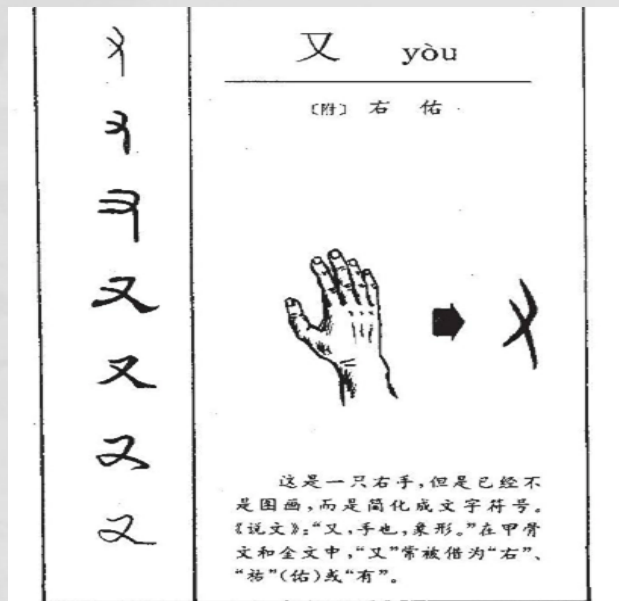 又 yòu
〔附〕 右 佑
又
又
又
又
这是一只右手,但是已经不
是图画,而是简化成文字符号。
《说文》:“又,手也,象形。”在甲骨
文和金文中,“又”常被借为“右”、
“祐”(佑)或“有”。